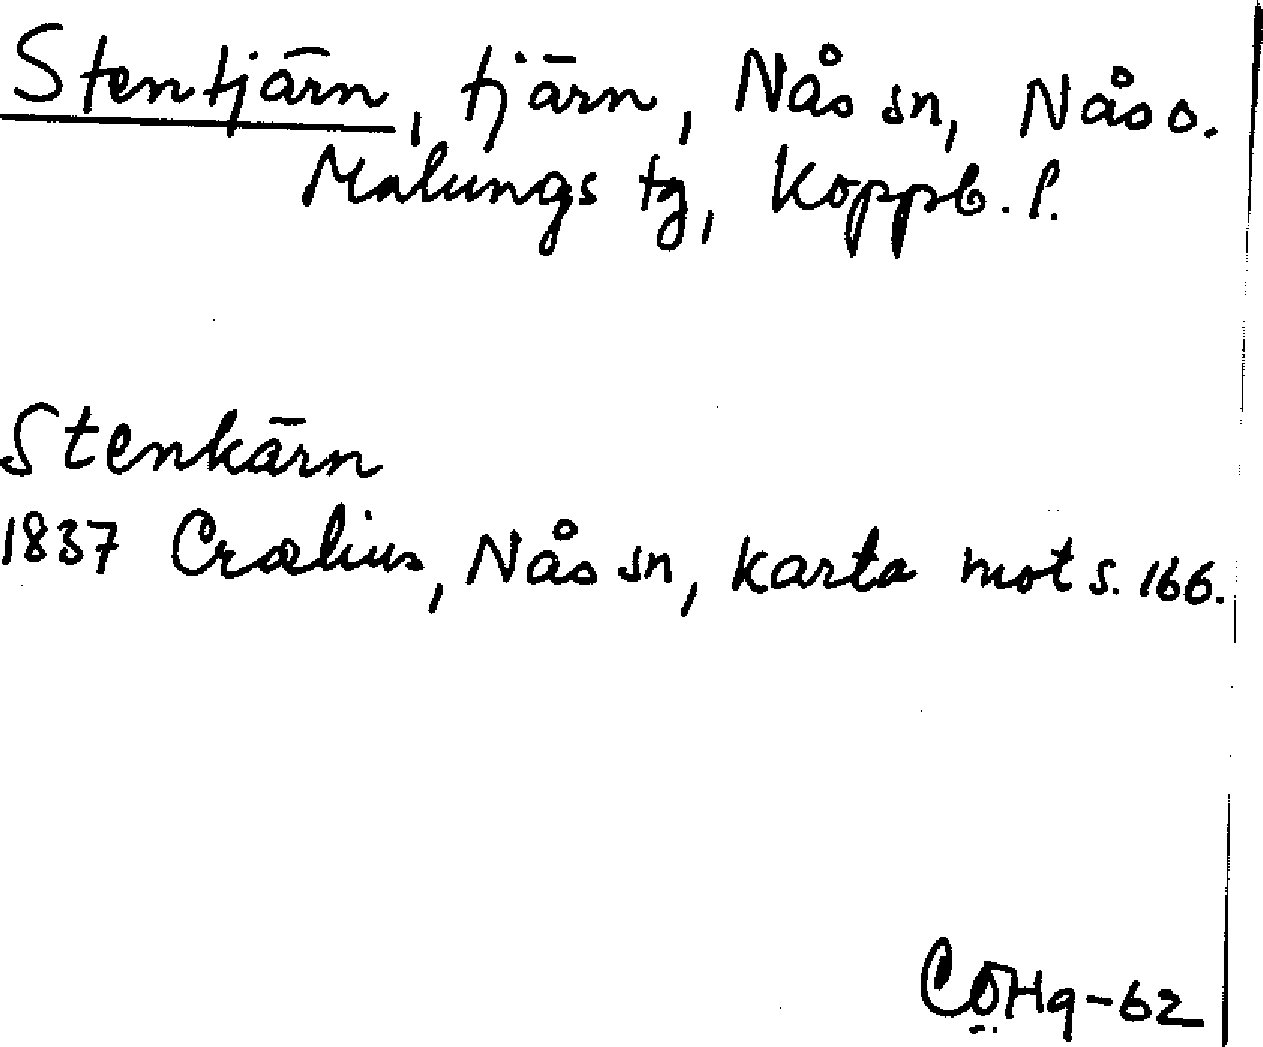 Stentjärn, tjärn, Nås sn, Nås o.
Malungs tg, Koppb. l.
Stenkärn
1837 Crælius, Nås sn, karta mot s. 166.
CÖHq-62